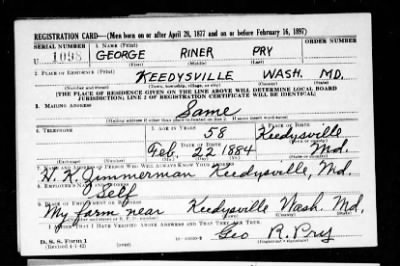 REGISTRATION CARD—(Men born on or after April 28, 1877 and on or before February 16, 1897)
SERIAL NUMBER 1. NAME (Print) ORDER NUMBER
U 1098 GEORGE RINER PRY
(First) (Middle) (Last)
2. PLACE OF RESIDENCE (Print)
KEEDYSVILLE WASH. MD.
(Number and street) (Town, township, village, or city) (County) (State)
[THE PLACE OF RESIDENCE GIVEN ON THE LINE ABOVE WILL DETERMINE LOCAL BOARD
JURISDICTION; LINE 2 OF REGISTRATION CERTIFICATE WILL BE IDENTICAL]
3. MAILING ADDRESS
Same
4. TELEPHONE 5. AGE IN YEARS 6. PLACE OF BIRTH
58 Keedysville
DATE OF BIRTH
Feb. 22 1884 Md.
(Mo.) (Day) (Yr.)
7. NAME AND ADDRESS OF PERSON WHO WILL ALWAYS KNOW YOUR ADDRESS
H. K. Zimmerman Keedysville, Md.
8. EMPLOYER'S NAME AND ADDRESS
Self
9. PLACE OF EMPLOYMENT OR BUSINESS
My farm near Keedysville Wash. Md.
I AFFIRM THAT I HAVE VERIFIED ABOVE ANSWERS AND THAT THEY ARE TRUE.
Geo R. Pry
D. S. S. Form 1
(Revised 4-1-42) (Registrant's signature)